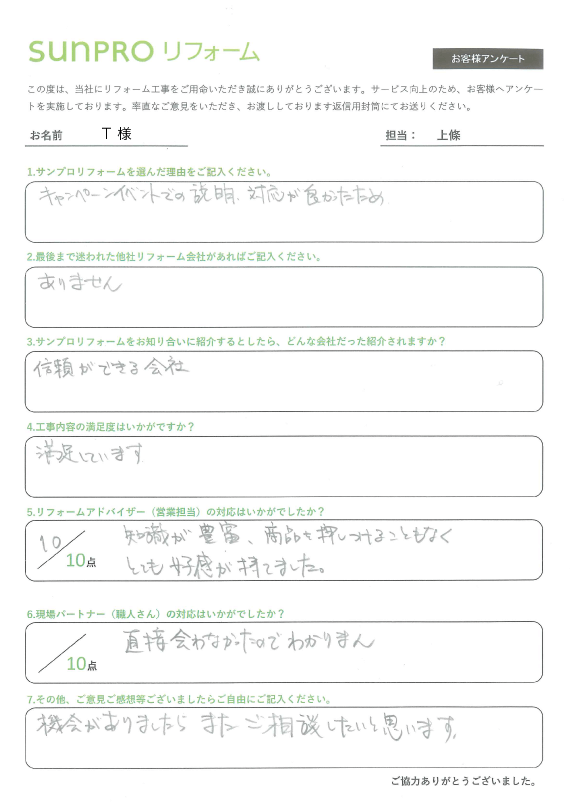 SUNPRO リフォーム
お客様アンケート
この度は、当社にリフォーム工事をご用命いただき誠にありがとうございます。サービス向上のため、お客様へアンケー
トを実施しております。率直なご意見をいただき、お渡ししております返信用封筒にてお送りください。
お名前 T 様 担当： 上條
1.サンプロリフォームを選んだ理由をご記入ください。
キャンペーンイベントでの説明、対応が良かったため
2.最後まで迷われた他社リフォーム会社があればご記入ください。
ありません
3.サンプロリフォームをお知り合いに紹介するとしたら、どんな会社だった紹介されますか？
信頼ができる会社
4.工事内容の満足度はいかがですか？
満足しています
5.リフォームアドバイザー（営業担当）の対応はいかがでしたか？
10/10点 知識が豊富、商品を押しつけることもなく
とても好感が持てました。
6.現場パートナー（職人さん）の対応はいかがでしたか？
/10点 直接会わなかったのでわかりません
7.その他、ご意見ご感想等ございましたらご自由にご記入ください。
機会がありましたらまたご相談したいと思います。
ご協力ありがとうございました。